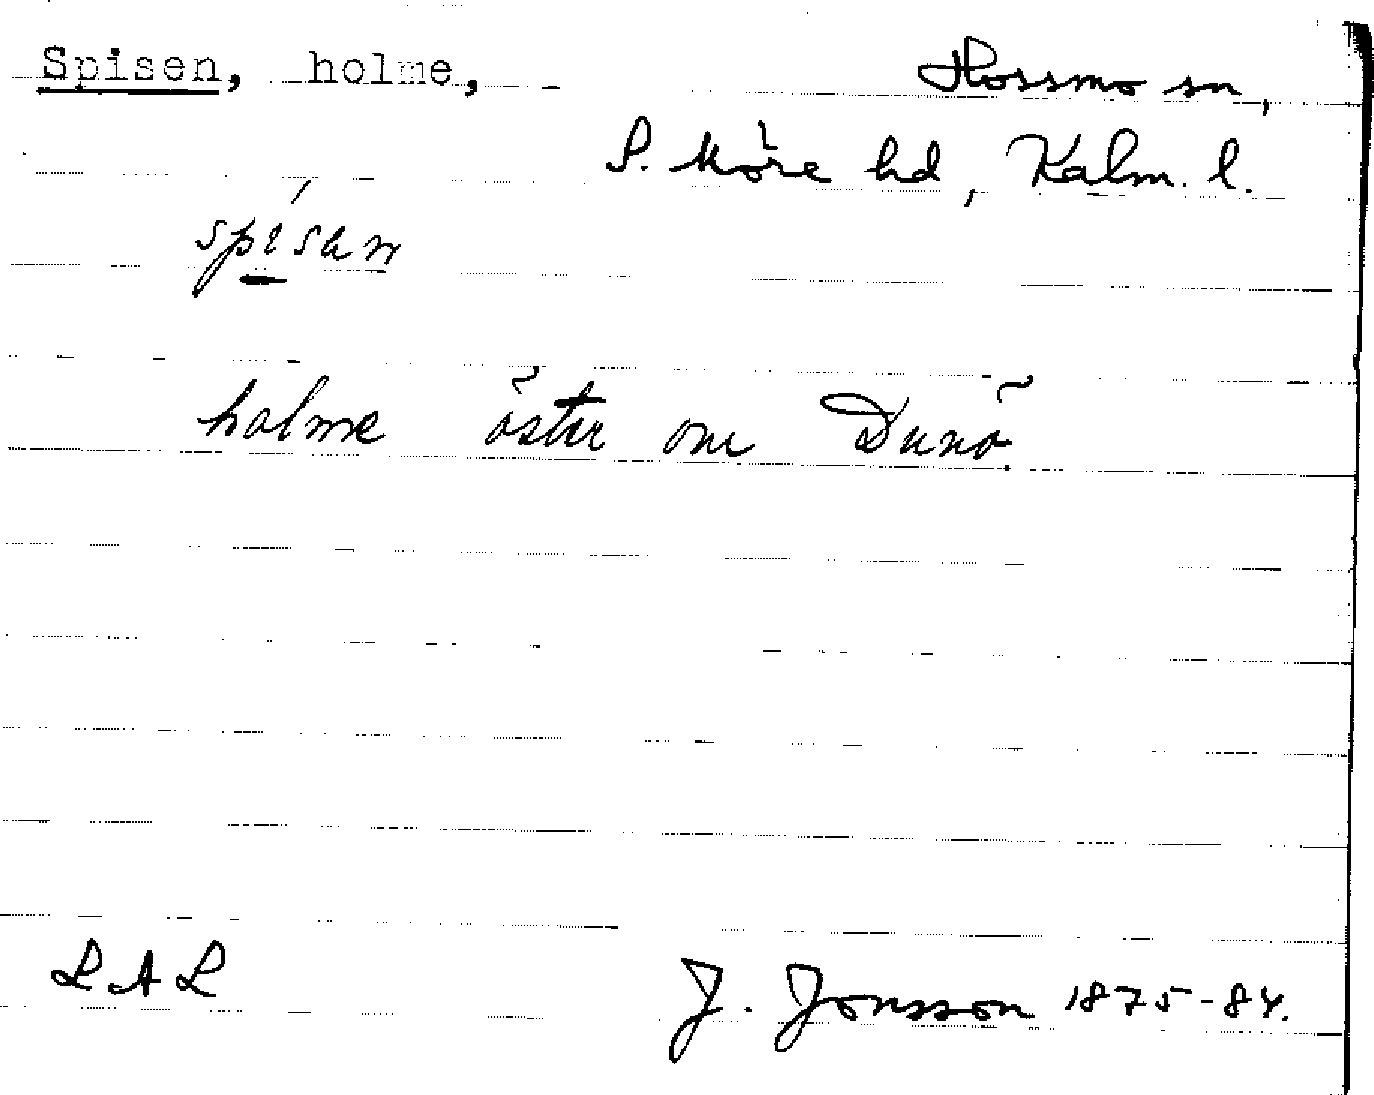 Spisen, holme, Hossmo sn,
S. Möre hd, Kalm. l.
spísan
holme öster om Dunö.
LAL J. Jonsson 1875-84.